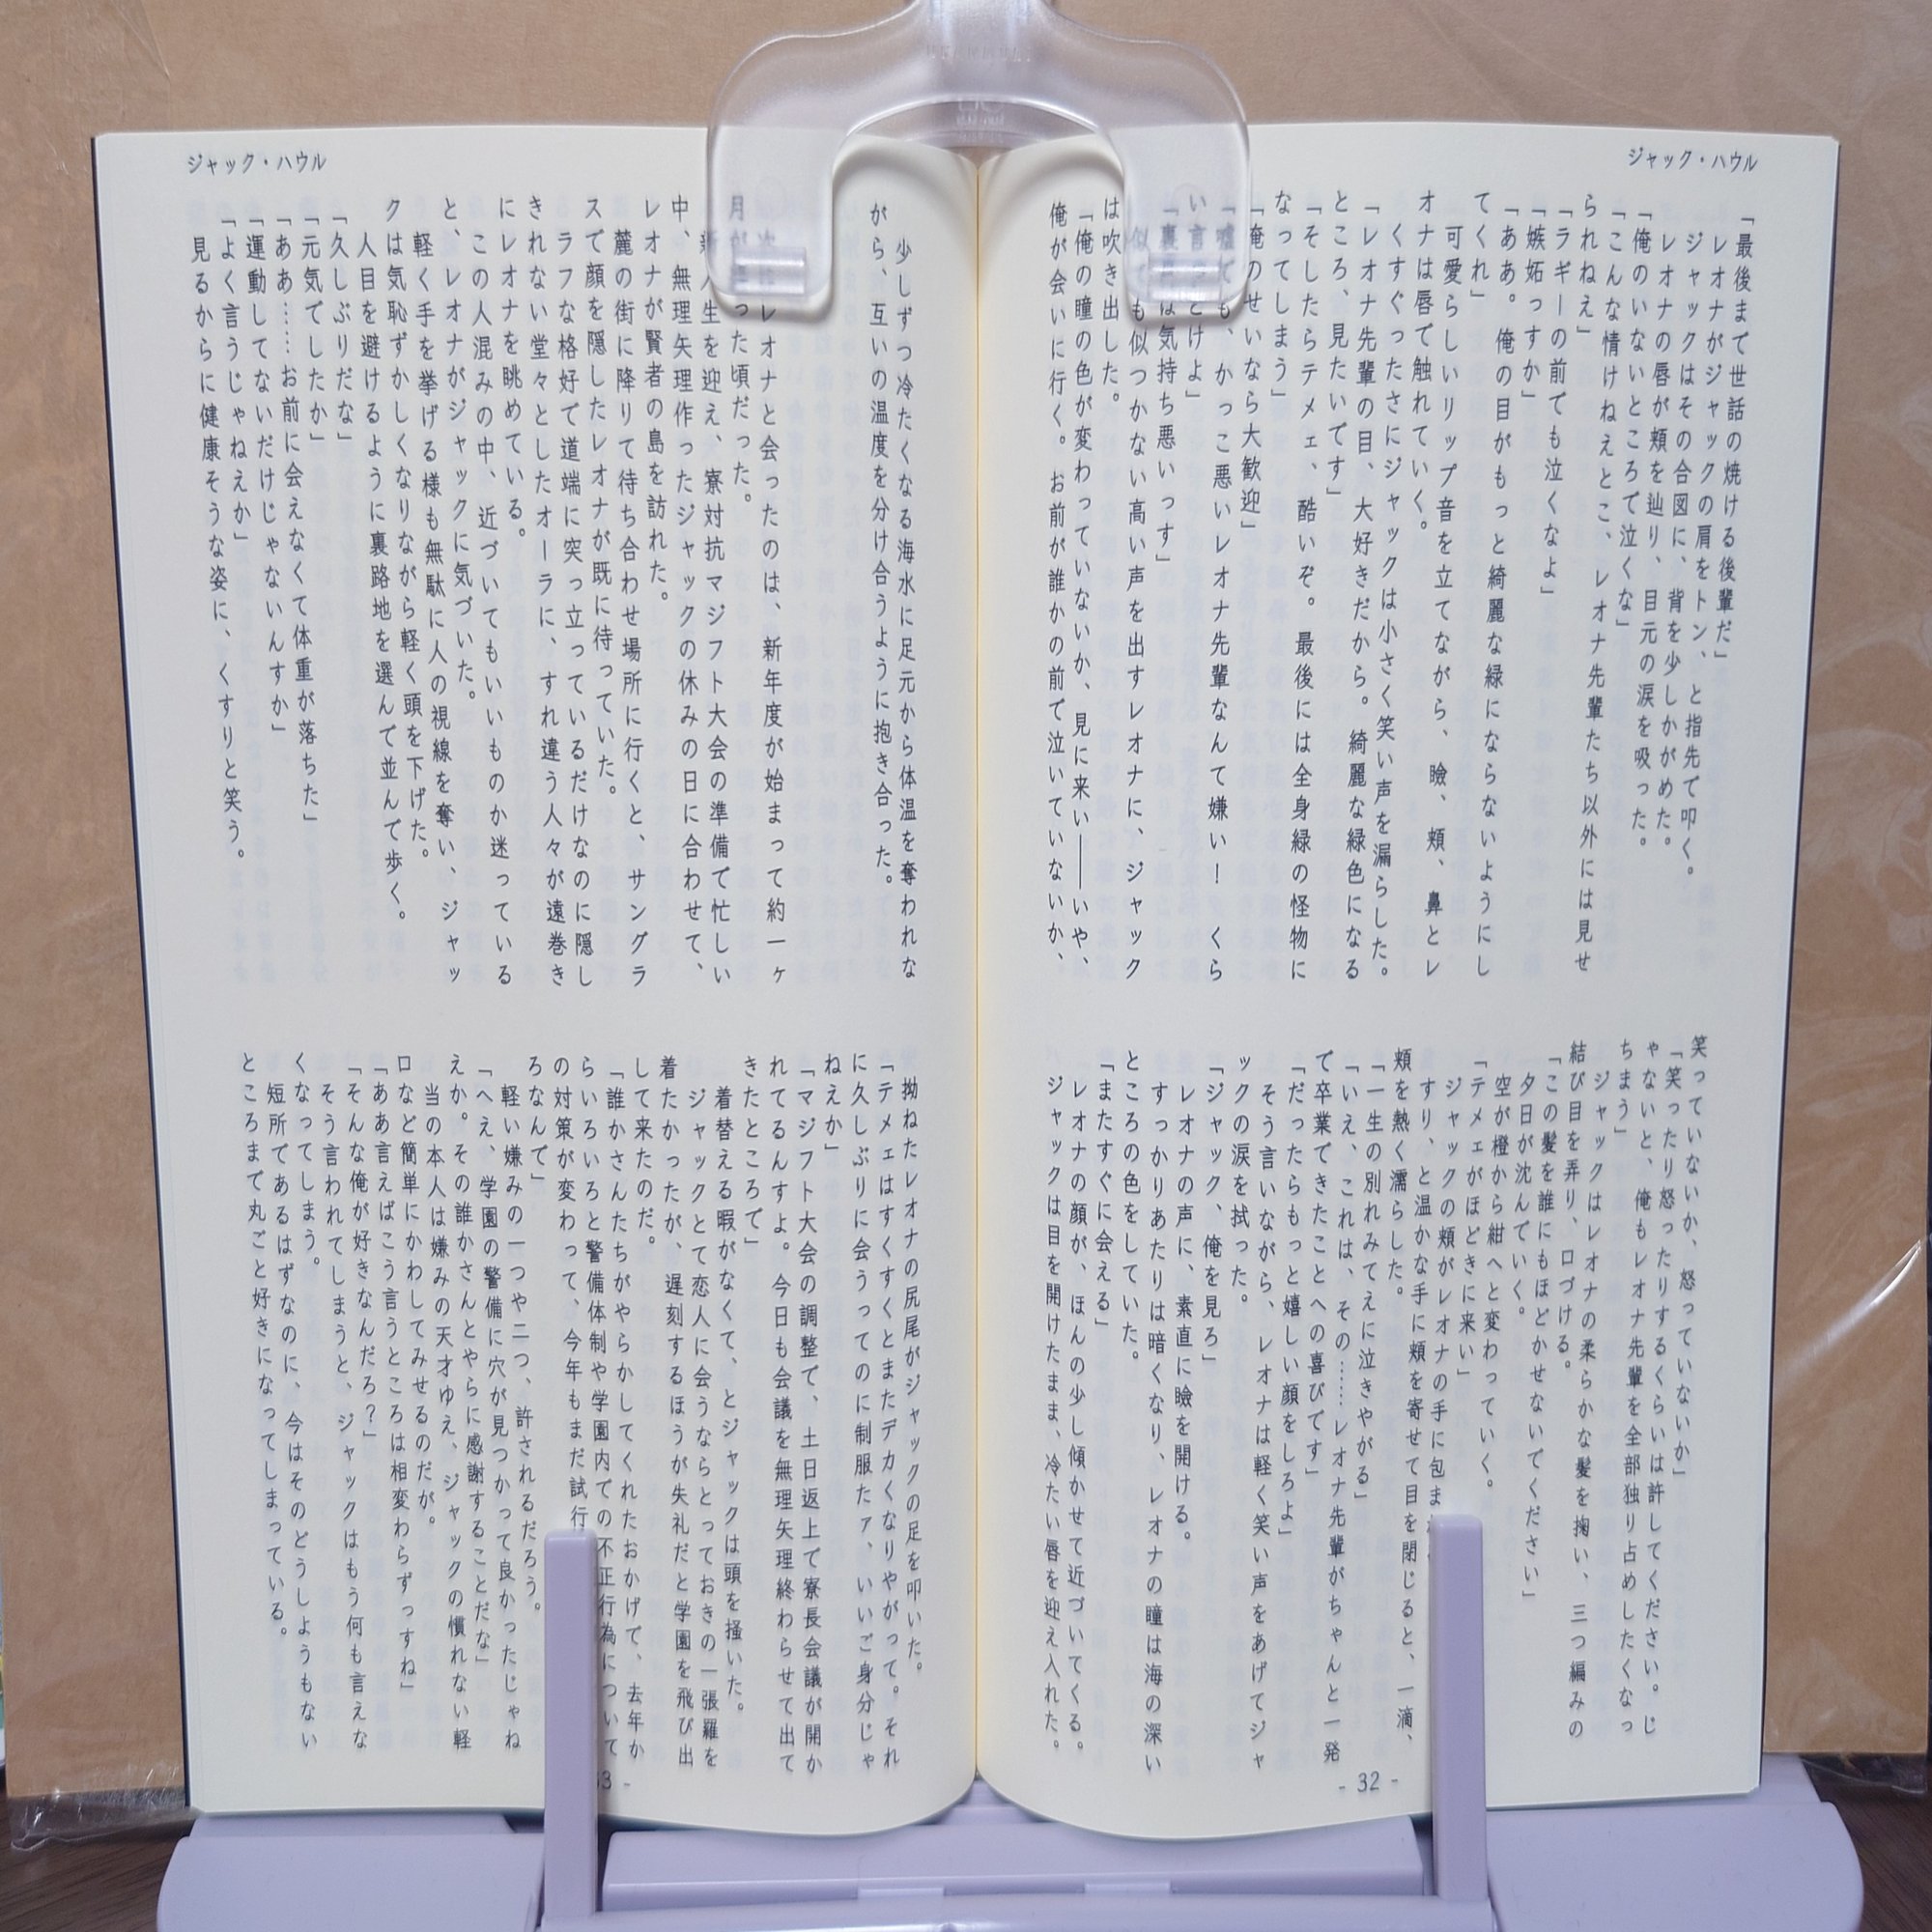 ジャック・ハウル
「最後まで世話の焼ける後輩だ」
レオナがジャックの肩をトン、と指先で叩く。
ジャックはその合図に、背を少しかがめた。
レオナの唇が頬を辿り、目元の涙を吸った。
「俺のいないところで泣くな」
「こんな情けねえとこ、レオナ先輩たち以外には見せ
られねえ」
「ラギーの前でも泣くなよ」
「嫉妬っすか」
「ああ。俺の目がもっと綺麗な緑にならないようにし
てくれ」
可愛らしいリップ音を立てながら、瞼、頬、鼻とレ
オナは唇で触れていく。
くすぐったさにジャックは小さく笑い声を漏らした。
「レオナ先輩の目、大好きだから。綺麗な緑色になる
ところ、見たいです」
「そしたらテメェ、酷いぞ。最後には全身緑の怪物に
なってしまう」
「俺のせいなら大歓迎」
「嘘でも、かっこ悪いレオナ先輩なんて嫌い！くら
い言っとけよ」
「裏声は気持ち悪いっす」
似ても似つかない高い声を出すレオナに、ジャック
は吹き出した。
「俺の瞳の色が変わっていないか、見に来い――いや、
俺が会いに行く。お前が誰かの前で泣いていないか、
笑っていないか、怒っていないか」
「笑ったり怒ったりするくらいは許してください。じ
ゃないと、俺もレオナ先輩を全部独り占めしたくなっ
ちまう」
ジャックはレオナの柔らかな髪を掬い、三つ編みの
結び目を弄り、口づける。
「この髪を誰にもほどかせないでください」
夕日が沈んでいく。
空が橙から紺へと変わっていく。
「テメェがほどきに来い」
ジャックの頬がレオナの手に包ま
すり、と温かな手に頬を寄せて目を閉じると、一滴、
頬を熱く濡らした。
「一生の別れみてえに泣きやがる」
「いえ、これは、その……レオナ先輩がちゃんと一発
で卒業できたことへの喜びです」
「だったらもっと嬉しい顔をしろよ」
そう言いながら、レオナは軽く笑い声をあげてジャ
ックの涙を拭った。
「ジャック、俺を見ろ」
レオナの声に、素直に瞼を開ける。
すっかりあたりは暗くなり、レオナの瞳は海の深い
ところの色をしていた。
「またすぐに会える」
レオナの顔が、ほんの少し傾かせて近づいてくる。
ジャックは目を開けたまま、冷たい唇を迎え入れた。
- 32 -
ジャック・ハウル
少しずつ冷たくなる海水に足元から体温を奪われな
がら、互いの温度を分け合うように抱き合った。
次にレオナと会ったのは、新年度が始まって約一ヶ
月が経った頃だった。
新入生を迎え、寮対抗マジフト大会の準備で忙しい
中、無理矢理作ったジャックの休みの日に合わせて、
レオナが賢者の島を訪れた。
麓の街に降りて待ち合わせ場所に行くと、サングラ
スで顔を隠したレオナが既に待っていた。
ラフな格好で道端に突っ立っているだけなのに隠し
きれない堂々としたオーラに、すれ違う人々が遠巻き
にレオナを眺めている。
この人混みの中、近づいてもいいものか迷っている
と、レオナがジャックに気づいた。
軽く手を挙げる様も無駄に人の視線を奪い、ジャッ
クは気恥ずかしくなりながら軽く頭を下げた。
人目を避けるように裏路地を選んで並んで歩く。
「久しぶりだな」
「元気でしたか」
「ああ……お前に会えなくて体重が落ちた」
「運動してないだけじゃないんすか」
「よく言うじゃねえか」
見るからに健康そうな姿に、くすりと笑う。
拗ねたレオナの尻尾がジャックの足を叩いた。
「テメェはすくすくとまたデカくなりやがって。それ
に久しぶりに会うってのに制服たァ、いいご身分じゃ
ねえか」
「マジフト大会の調整で、土日返上で寮長会議が開か
れてるんすよ。今日も会議を無理矢理終わらせて出て
きたところで」
着替える暇がなくて、とジャックは頭を掻いた。
ジャックとて恋人に会うならとっておきの一張羅を
着たかったが、遅刻するほうが失礼だと学園を飛び出
して来たのだ。
「誰かさんたちがやらかしてくれたおかげで、去年か
らいろいろと警備体制や学園内での不正行為について
の対策が変わって、今年もまだ試行
ろなんで」
軽い嫌みの一つや二つ、許されるだろう。
「へえ、学園の警備に穴が見つかって良かったじゃね
えか。その誰かさんとやらに感謝することだな」
当の本人は嫌みの天才ゆえ、ジャックの慣れない軽
口など簡単にかわしてみせるのだが。
「ああ言えばこう言うところは相変わらずっすね」
「そんな俺が好きなんだろ？」
そう言われてしまうと、ジャックはもう何も言えな
くなってしまう。
短所であるはずなのに、今はそのどうしようもない
ところまで丸ごと好きになってしまっている。